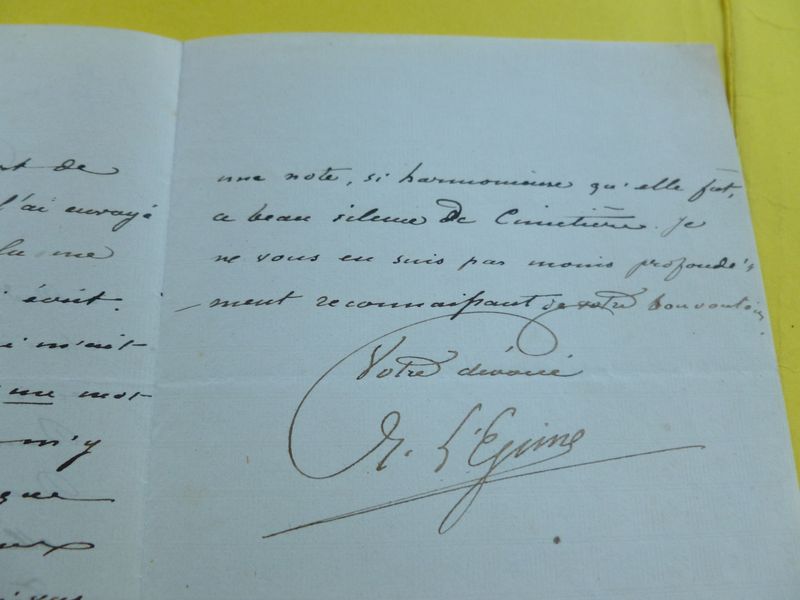 nt de
l'ai envoyé
lu me
i écrit.
i m'ait
une mot-
m'y
que
eux
une note, si harmonieuse qu'elle fût,
a beau silence de Cimetière. Je
ne vous en suis pas moins profondé-
ment reconnaissant de votre bon vouloir.
Votre dévoué
L'Epine